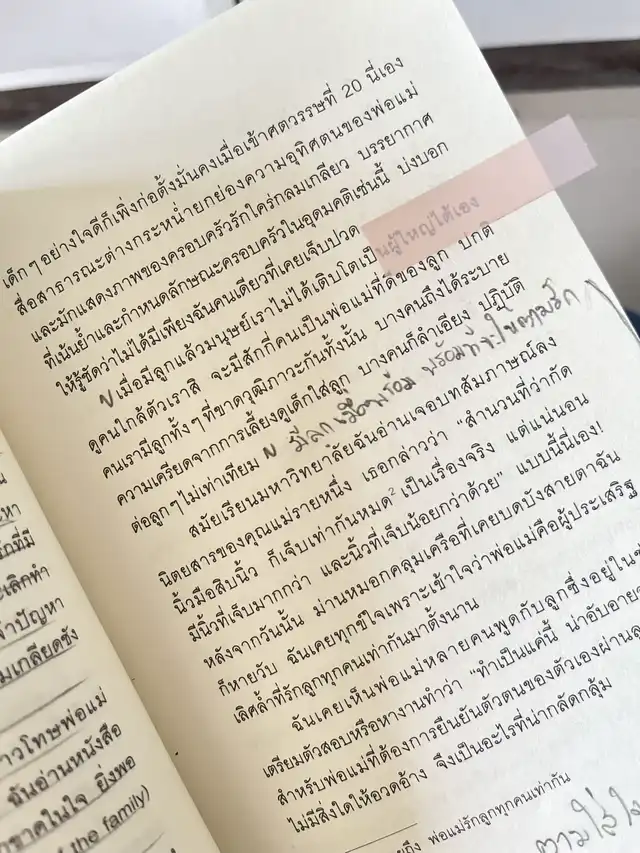 เด็กๆ อย่างใจดีก็เพิ่งก่อตั้งมั่นคงเมื่อเข้าศตวรรษที่ 20 นี่เอง
สื่อสาธารณะต่างกระหน่ำยกย่องความอุทิศตนของพ่อแม่
และมักแสดงภาพของครอบครัวรักใคร่กลมเกลียว บรรยากาศ
ที่เน้นย้ำและกำหนดลักษณะครอบครัวในอุดมคติเช่นนี้ บ่งบอก
ให้รู้ชัดว่าไม่ได้มีเพียงฉันคนเดียวที่เคยเจ็บปวด
เมื่อมีลูกแล้วมนุษย์เราไม่ได้เติบโตเป็นผู้ใหญ่ได้เอง
ดูคนใกล้ตัวเราสิ จะมีสักกี่คนเป็นพ่อแม่ที่ดีของลูก ปกติ
คนเรามีลูกทั้งๆ ที่ขาดวุฒิภาวะกันทั้งนั้น บางคนถึงได้ระบาย
ความเครียดจากการเลี้ยงดูเด็กใส่ลูก บางคนก็ลำเอียง ปฏิบัติ
ต่อลูกๆ ไม่เท่าเทียม
มีลูกเมื่อพร้อม พร้อมที่จะ
สมัยเรียนมหาวิทยาลัยฉันอ่านเจอบทสัมภาษณ์ลง
นิตยสารของคุณแม่รายหนึ่ง เธอกล่าวว่า "สำนวนที่ว่ากัด
นิ้วมือสิบนิ้ว ก็เจ็บเท่ากันหมด² เป็นเรื่องจริง แต่แน่นอน
มีนิ้วที่เจ็บมากกว่า และนิ้วที่เจ็บน้อยกว่าด้วย" แบบนี้นี่เอง!
หลังจากวันนั้น ม่านหมอกคลุมเครือที่เคยบดบังสายตาฉัน
ก็หายวับ ฉันเคยทุกข์ใจเพราะเข้าใจว่าพ่อแม่คือผู้ประเสริฐ
เลิศล้ำที่รักลูกทุกคนเท่ากันมาตั้งนาน
ฉันเคยเห็นพ่อแม่หลายคนพูดกับลูกซึ่งอยู่ในช่
เตรียมตัวสอบหรือหางานทำว่า "ทำเป็นแค่นี้ น่าอับอาย
สำหรับพ่อแม่ที่ต้องการยืนยันตัวตนของตัวเองผ่านล
ไม่มีสิ่งใดให้อวดอ้าง จึงเป็นอะไรที่น่ากลัดกลุ้ม
ถึง พ่อแม่รักลูกทุกคนเท่ากัน
ตามใส่ใ
หา
ที่มี
เลิกทำ
ำปัญหา
มเกลียดชัง
าวโทษพ่อแม่
ฉันอ่านหนังสือ
าขาดในใจ ยิ่งพอ
of the family)